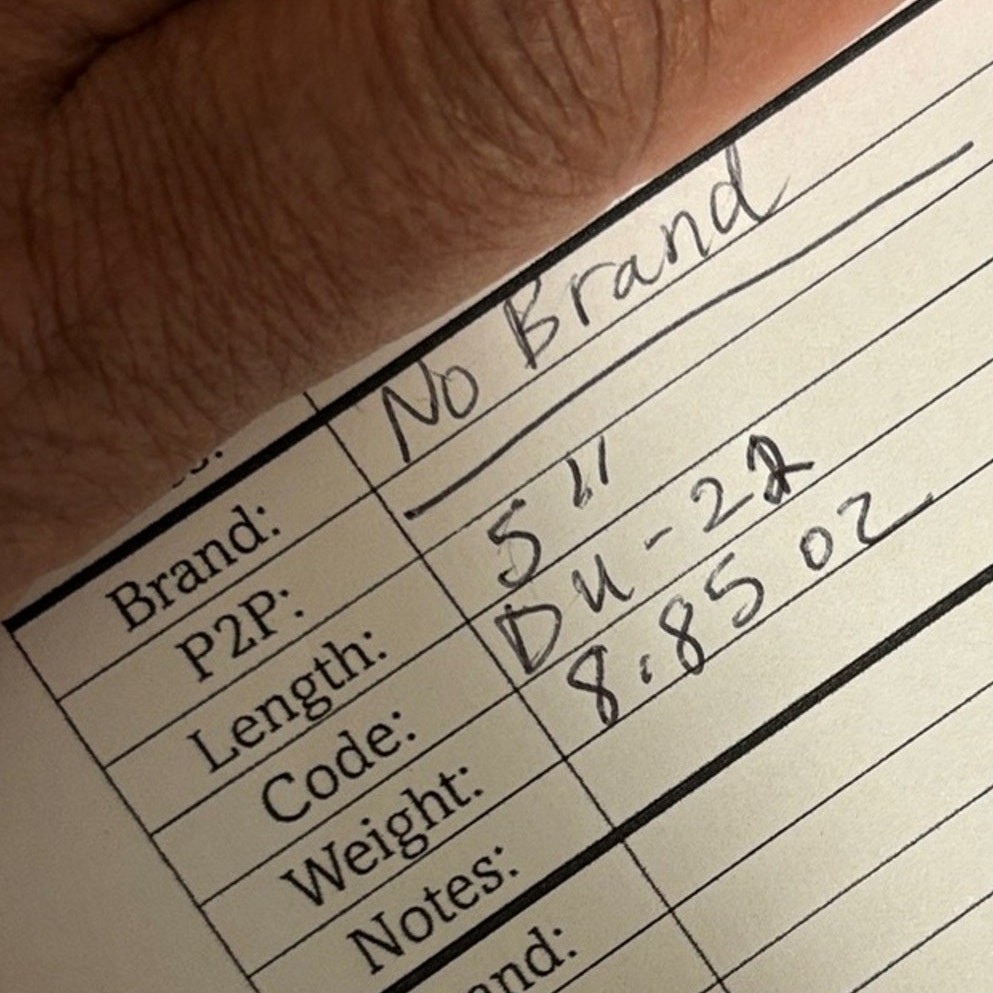 Brand: No Brand
P2P: —
Length: 5"
Code: DU-22
Weight: 8.85 oz
Notes:
and: